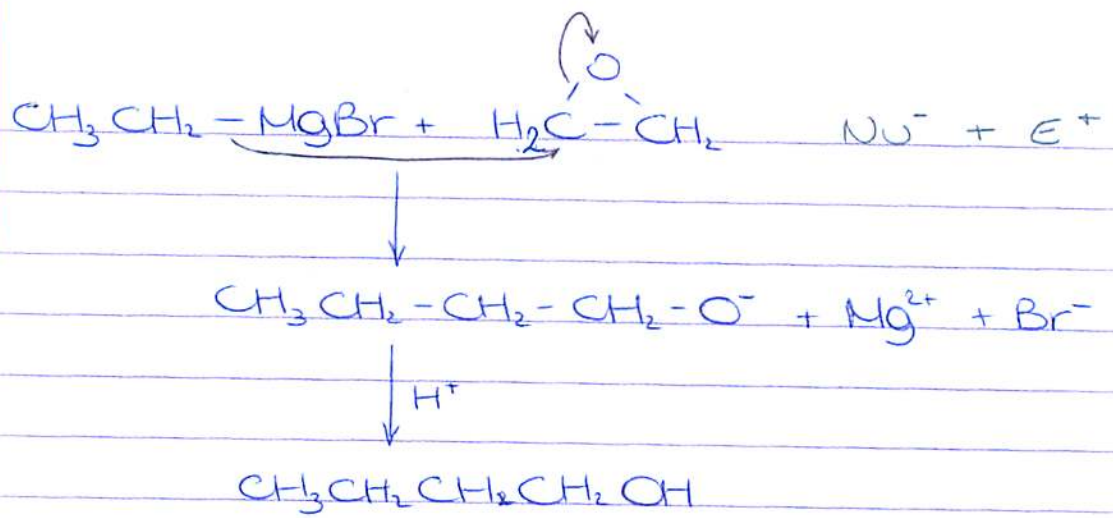 O
CH₃CH₂-MgBr + H₂C-CH₂ Nu⁻ + E⁺
CH₃CH₂-CH₂-CH₂-O⁻ + Mg²⁺ + Br⁻
H⁺
CH₃CH₂CH₂CH₂OH